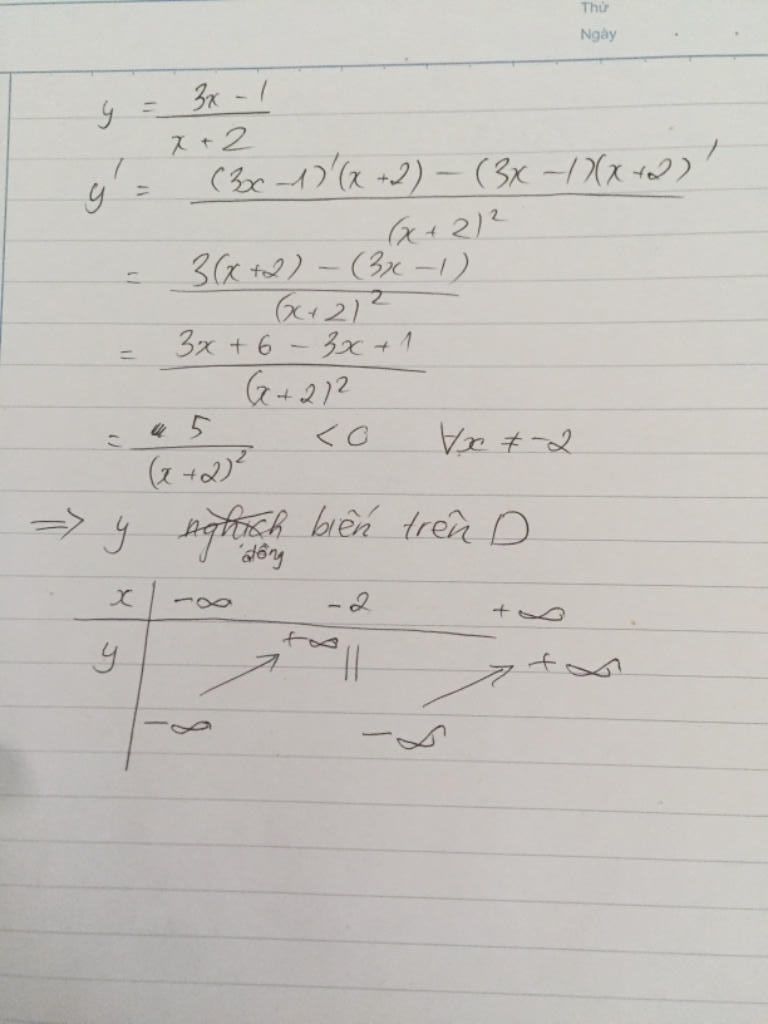 Thứ
Ngày
y = (3x - 1)/(x + 2)
y' = ((3x - 1)'(x + 2) - (3x - 1)(x + 2)')/(x + 2)²
= (3(x+2) - (3x - 1))/(x+2)²
= (3x + 6 - 3x + 1)/(x + 2)²
= 5/(x+2)² < 0 ∀x ≠ -2
=> y nghịch biến trên D
đồng
x -∞ -2 +∞
y +∞ || +∞
-∞ -∞